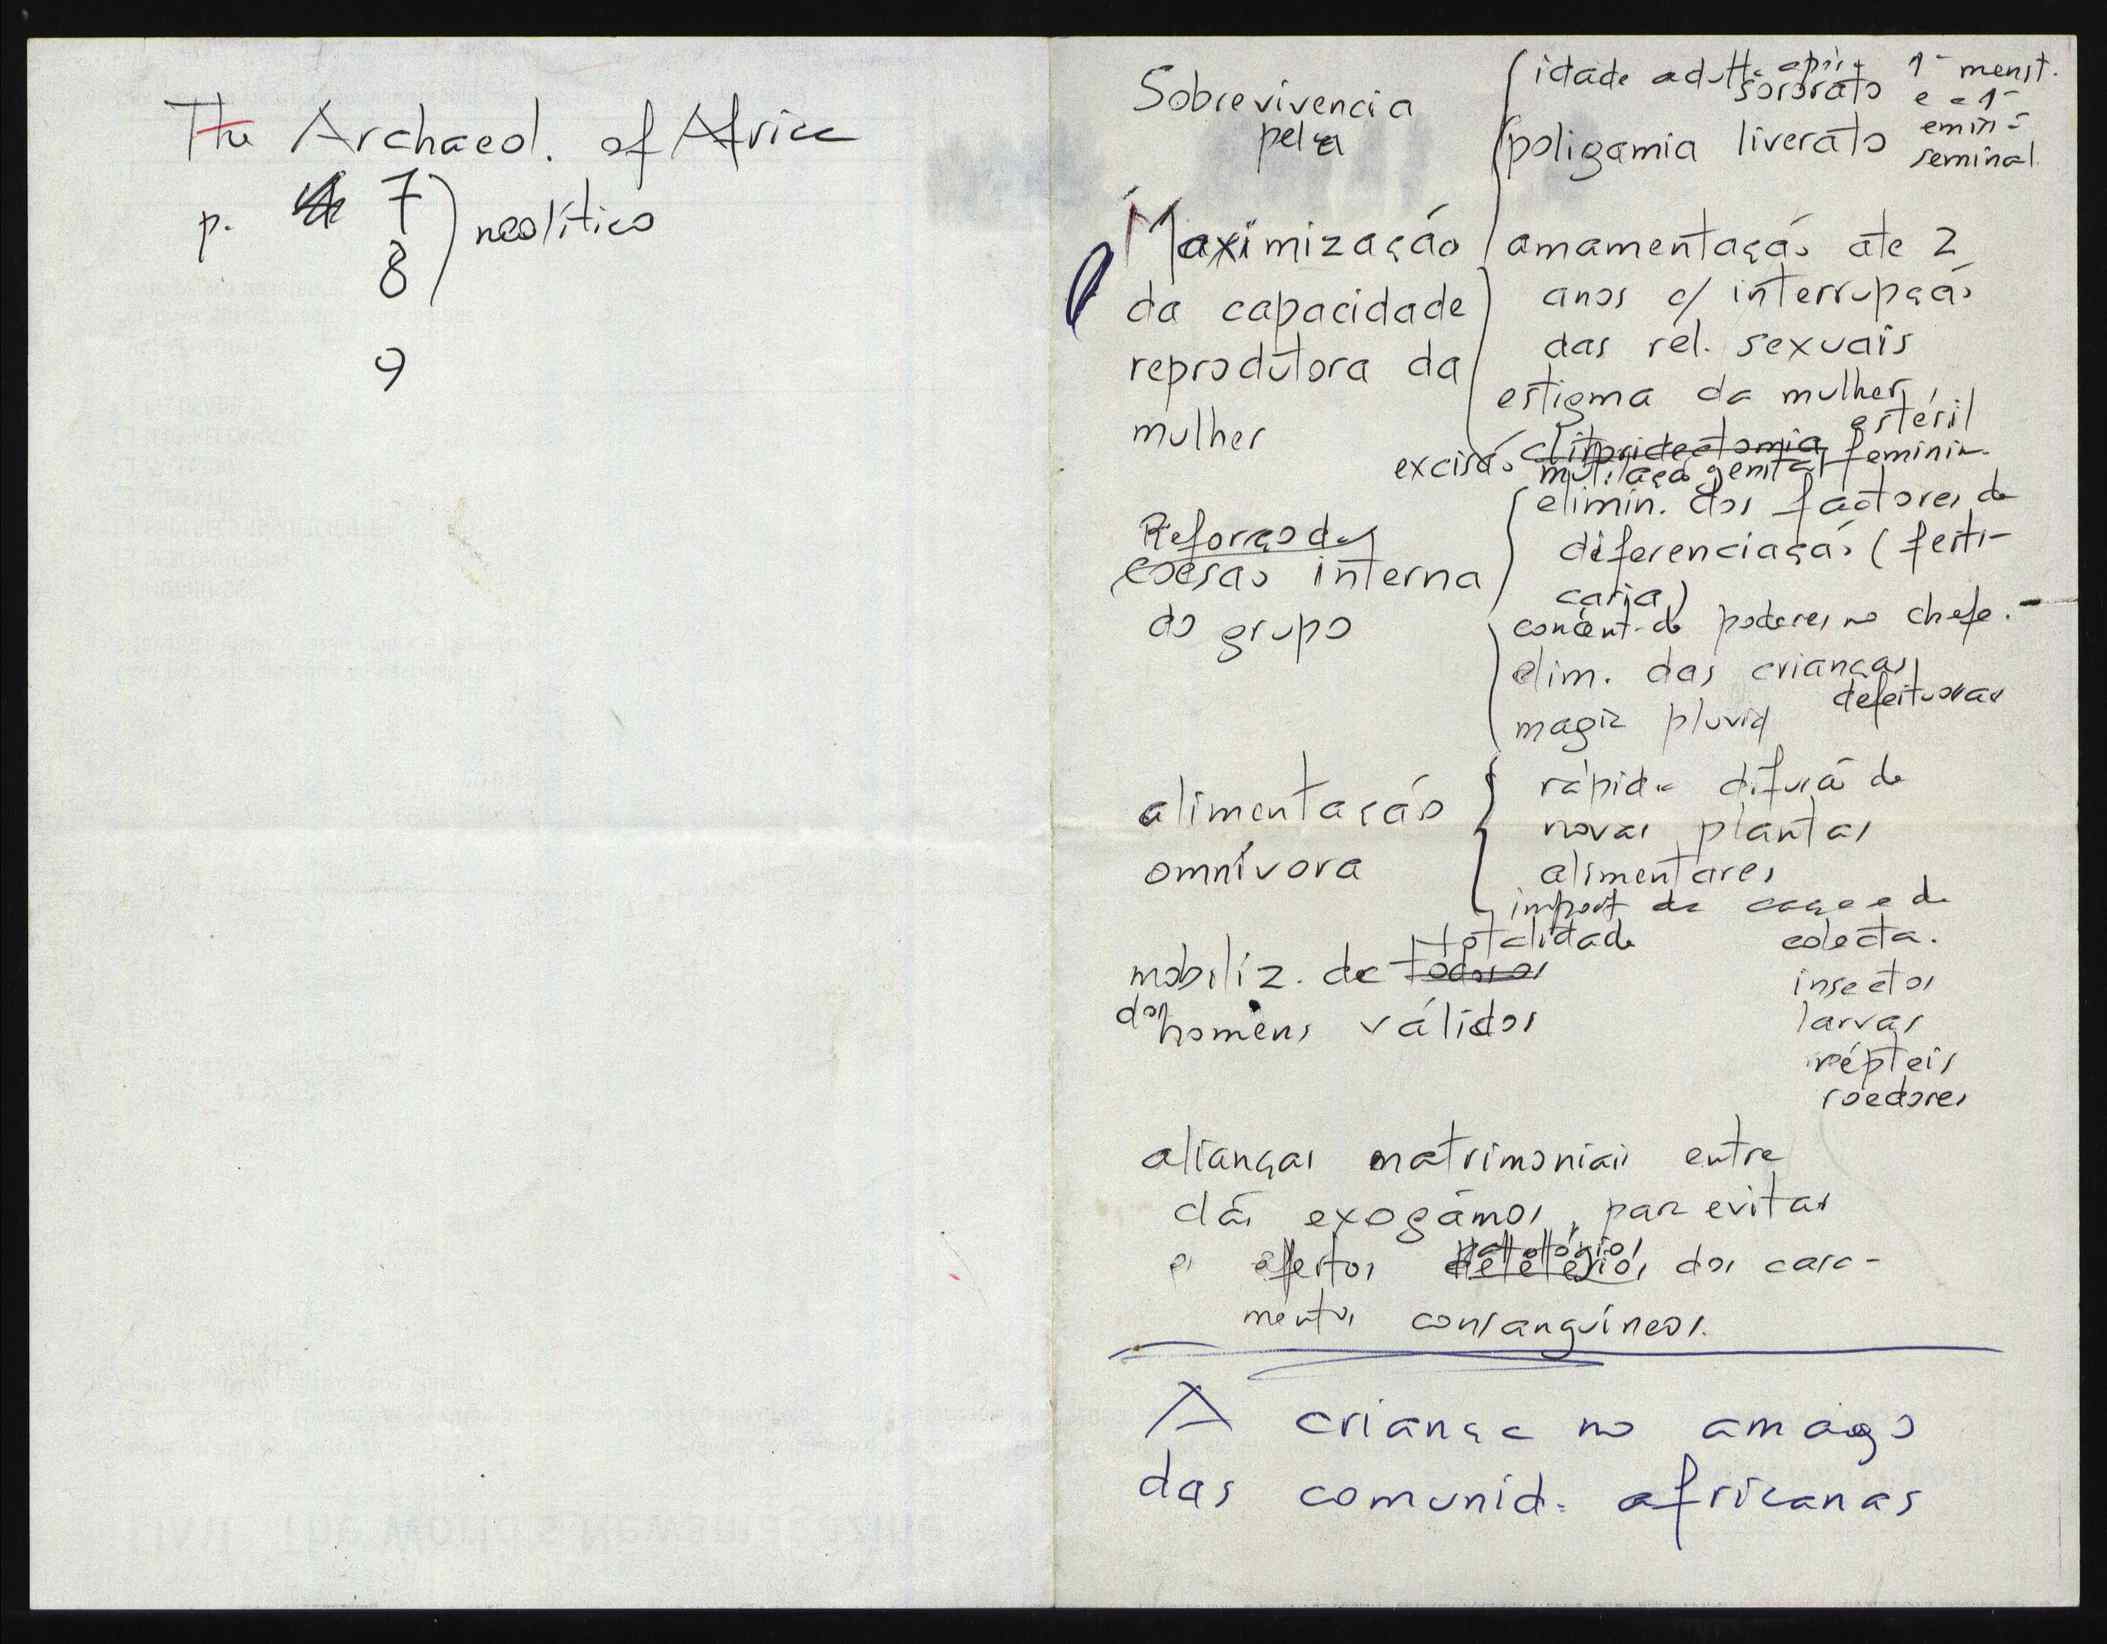 The Archaeol. of Africa
p. 7
8
neolítico
9
Sobrevivencia
pela
idade adulta após 1ª menst.
e a 1ª
emin.
seminal
sororato
poligamia liverato
Maximização
da capacidade
reprodutora da
mulher
amamentação ate 2
anos c/ interrupção
das rel. sexuais
estigma da mulher
estéril
excisão clitoridectomia
mutilação genital feminin.
Reforço da
coesão interna
do grupo
elimin. dos factores de
diferenciação (feiti-
caria)
concent. de poderes no chefe.-
elim. das crianças
defeituosas
magia pluvia
alimentação
omnívora
rápida difusão de
novas plantas
alimentares
import da caça e da
colecta.
insectos
larvas
répteis
roedores
mobiliz. da todos os
totalidade
dos homens válidos
alianças matrimoniais entre
clãs exogâmos, para evitar
os efeitos deletérios dos casa-
mentos consanguíneos.
A criança no amago
das comunid. africanas